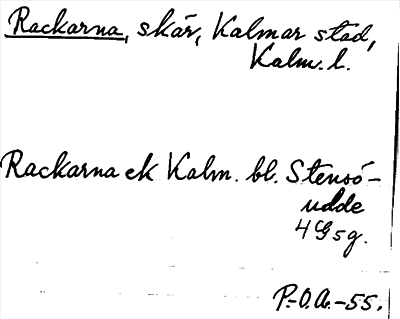 Rackarna, skär, Kalmar stad,
Kalm. l.
Rackarna ek Kalm. bl. Stensö-
udde
4G5g.
P.-O.A.-55.